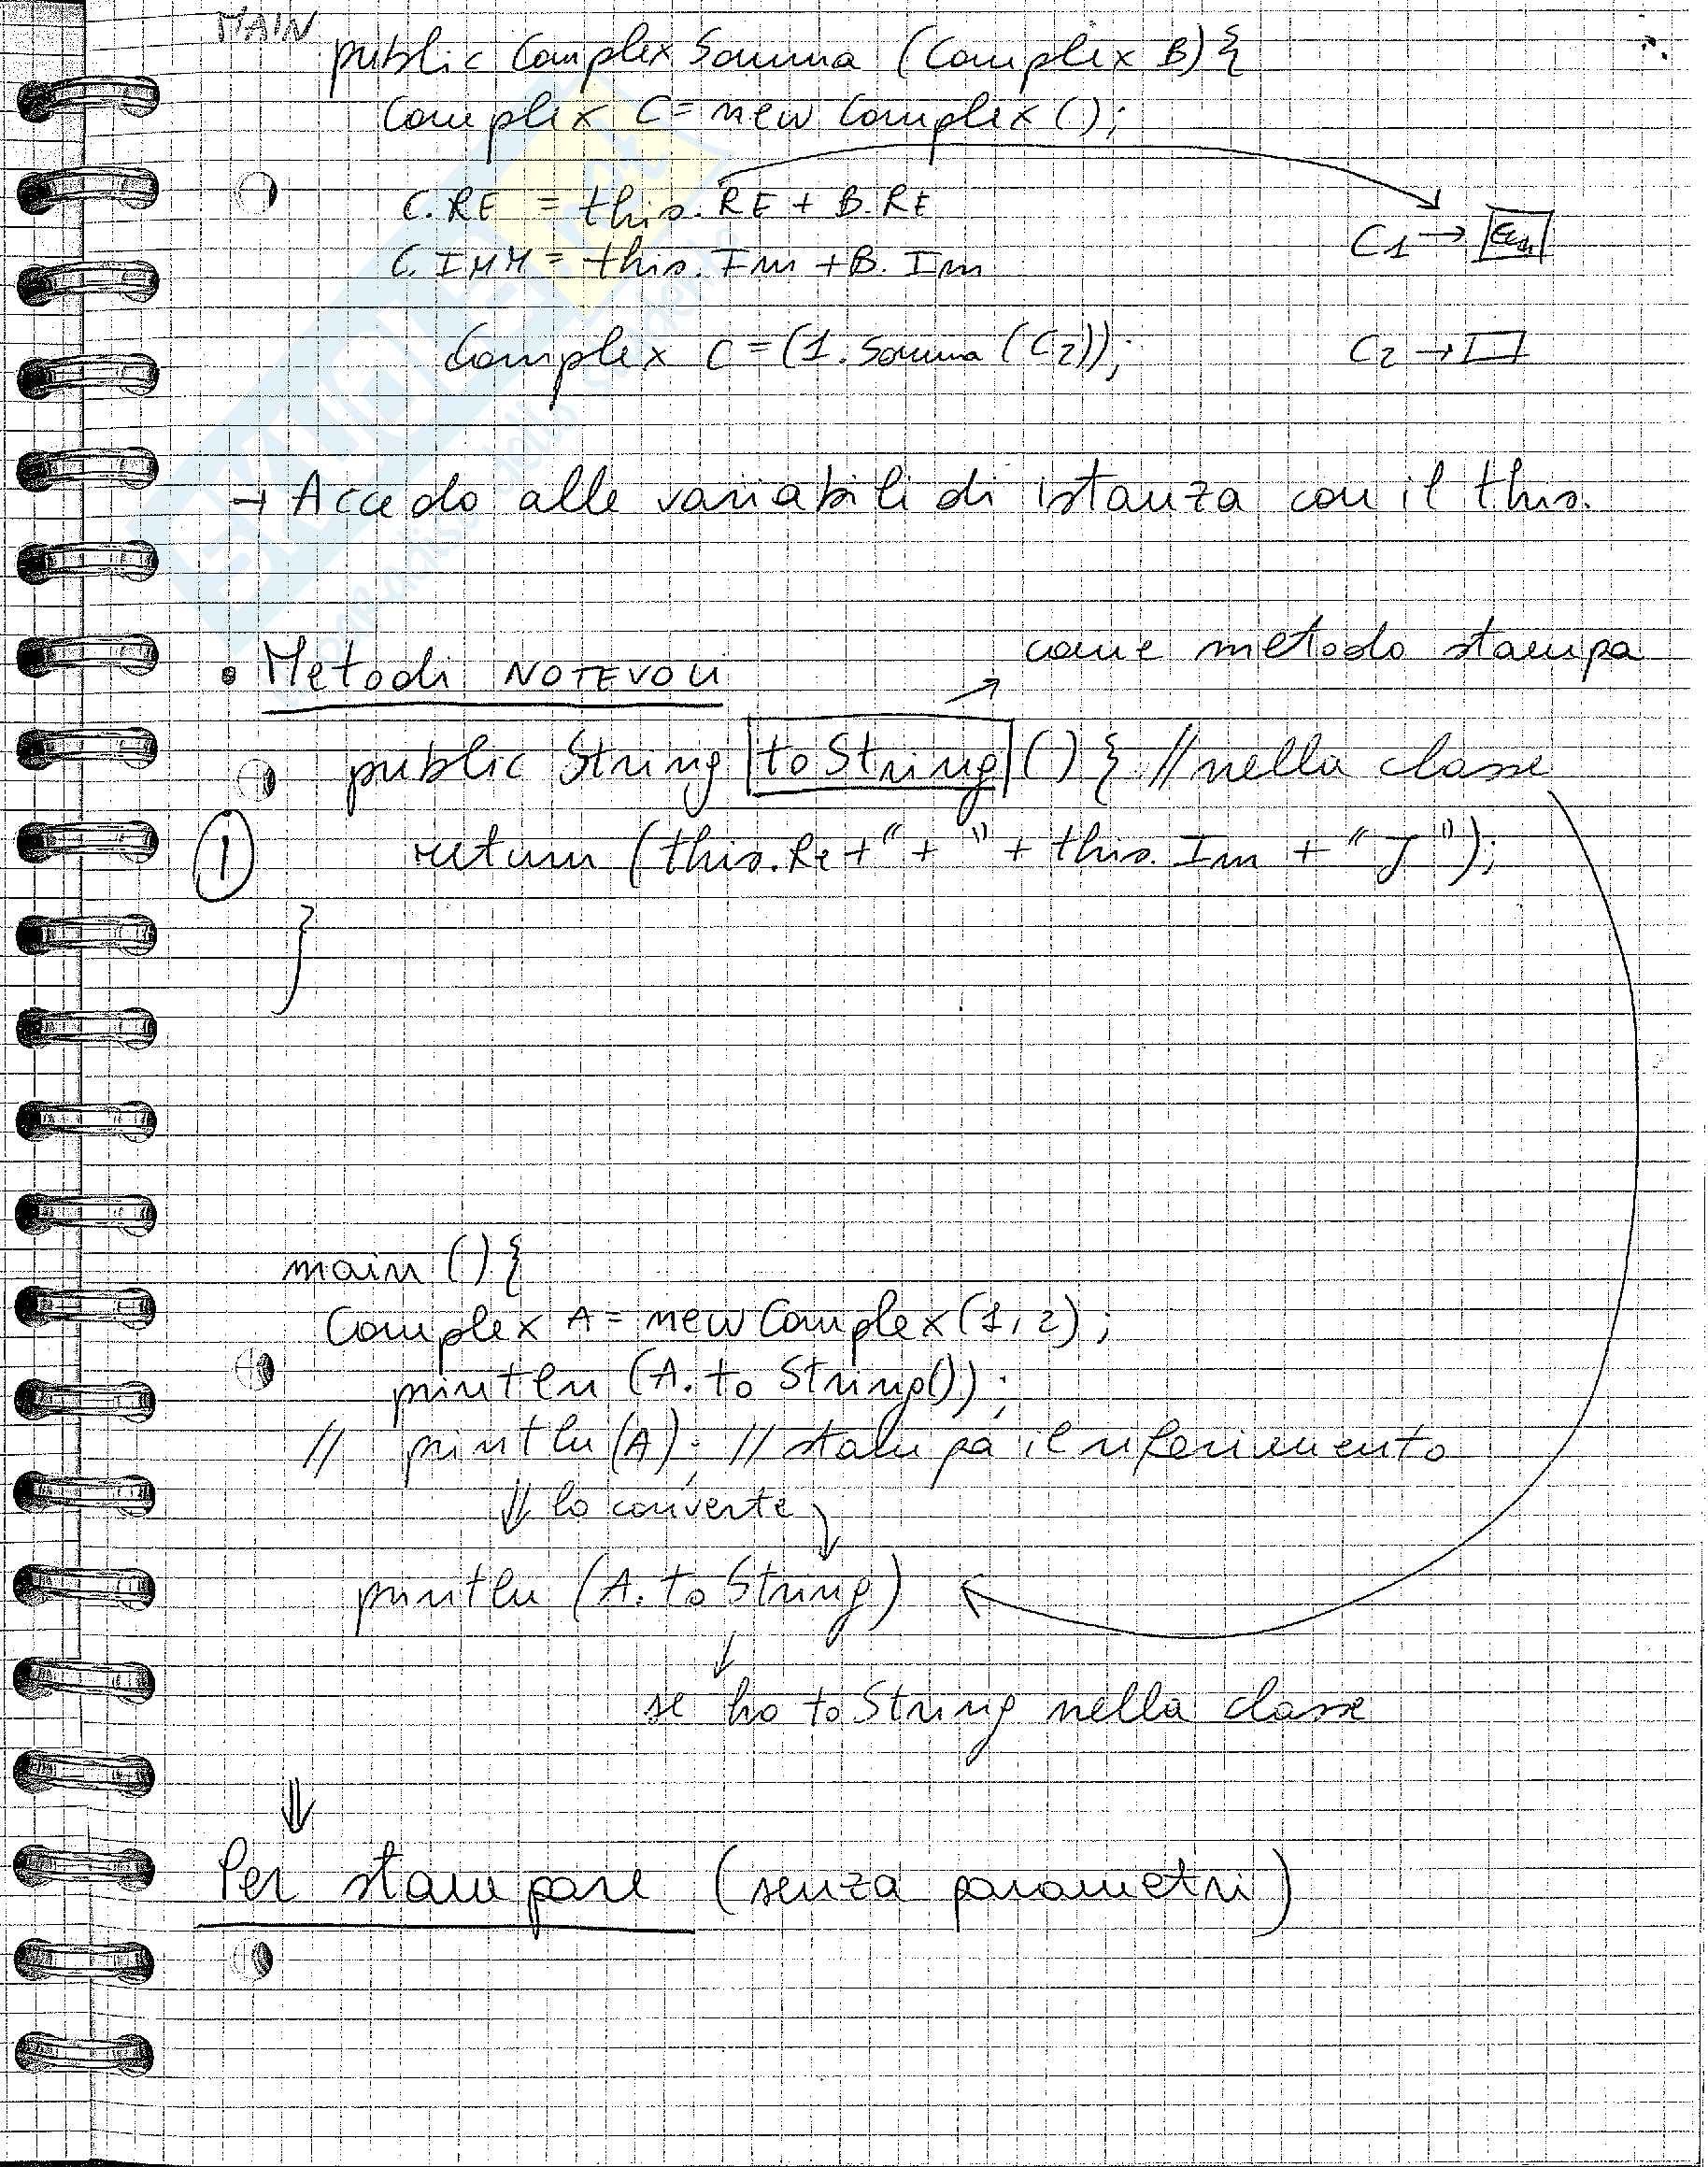 MAIN
public Complex Somma (Complex B){
Complex C = new Complex ();
C.RE = this.RE + B.RE
C1 →
C.IMM = this.Im + B.Im
Complex C = (1.Somma (C2));
C2 →
→ Accedo alle variabili di istanza con il this.
come metodo stampa
• Metodi NOTEVOLI
public String toString () { // nella classe
1 return (this.Re + " + " + this.Im + "J");
}
main () {
Complex A = new Complex (1, 2);
println (A.to String());
// println (A); // stampa il riferimento
⇓ lo converte
println (A.to String)
↓
se ho toString nella classe
⇓
Per stampare (senza parametri)
SKUOLA.net